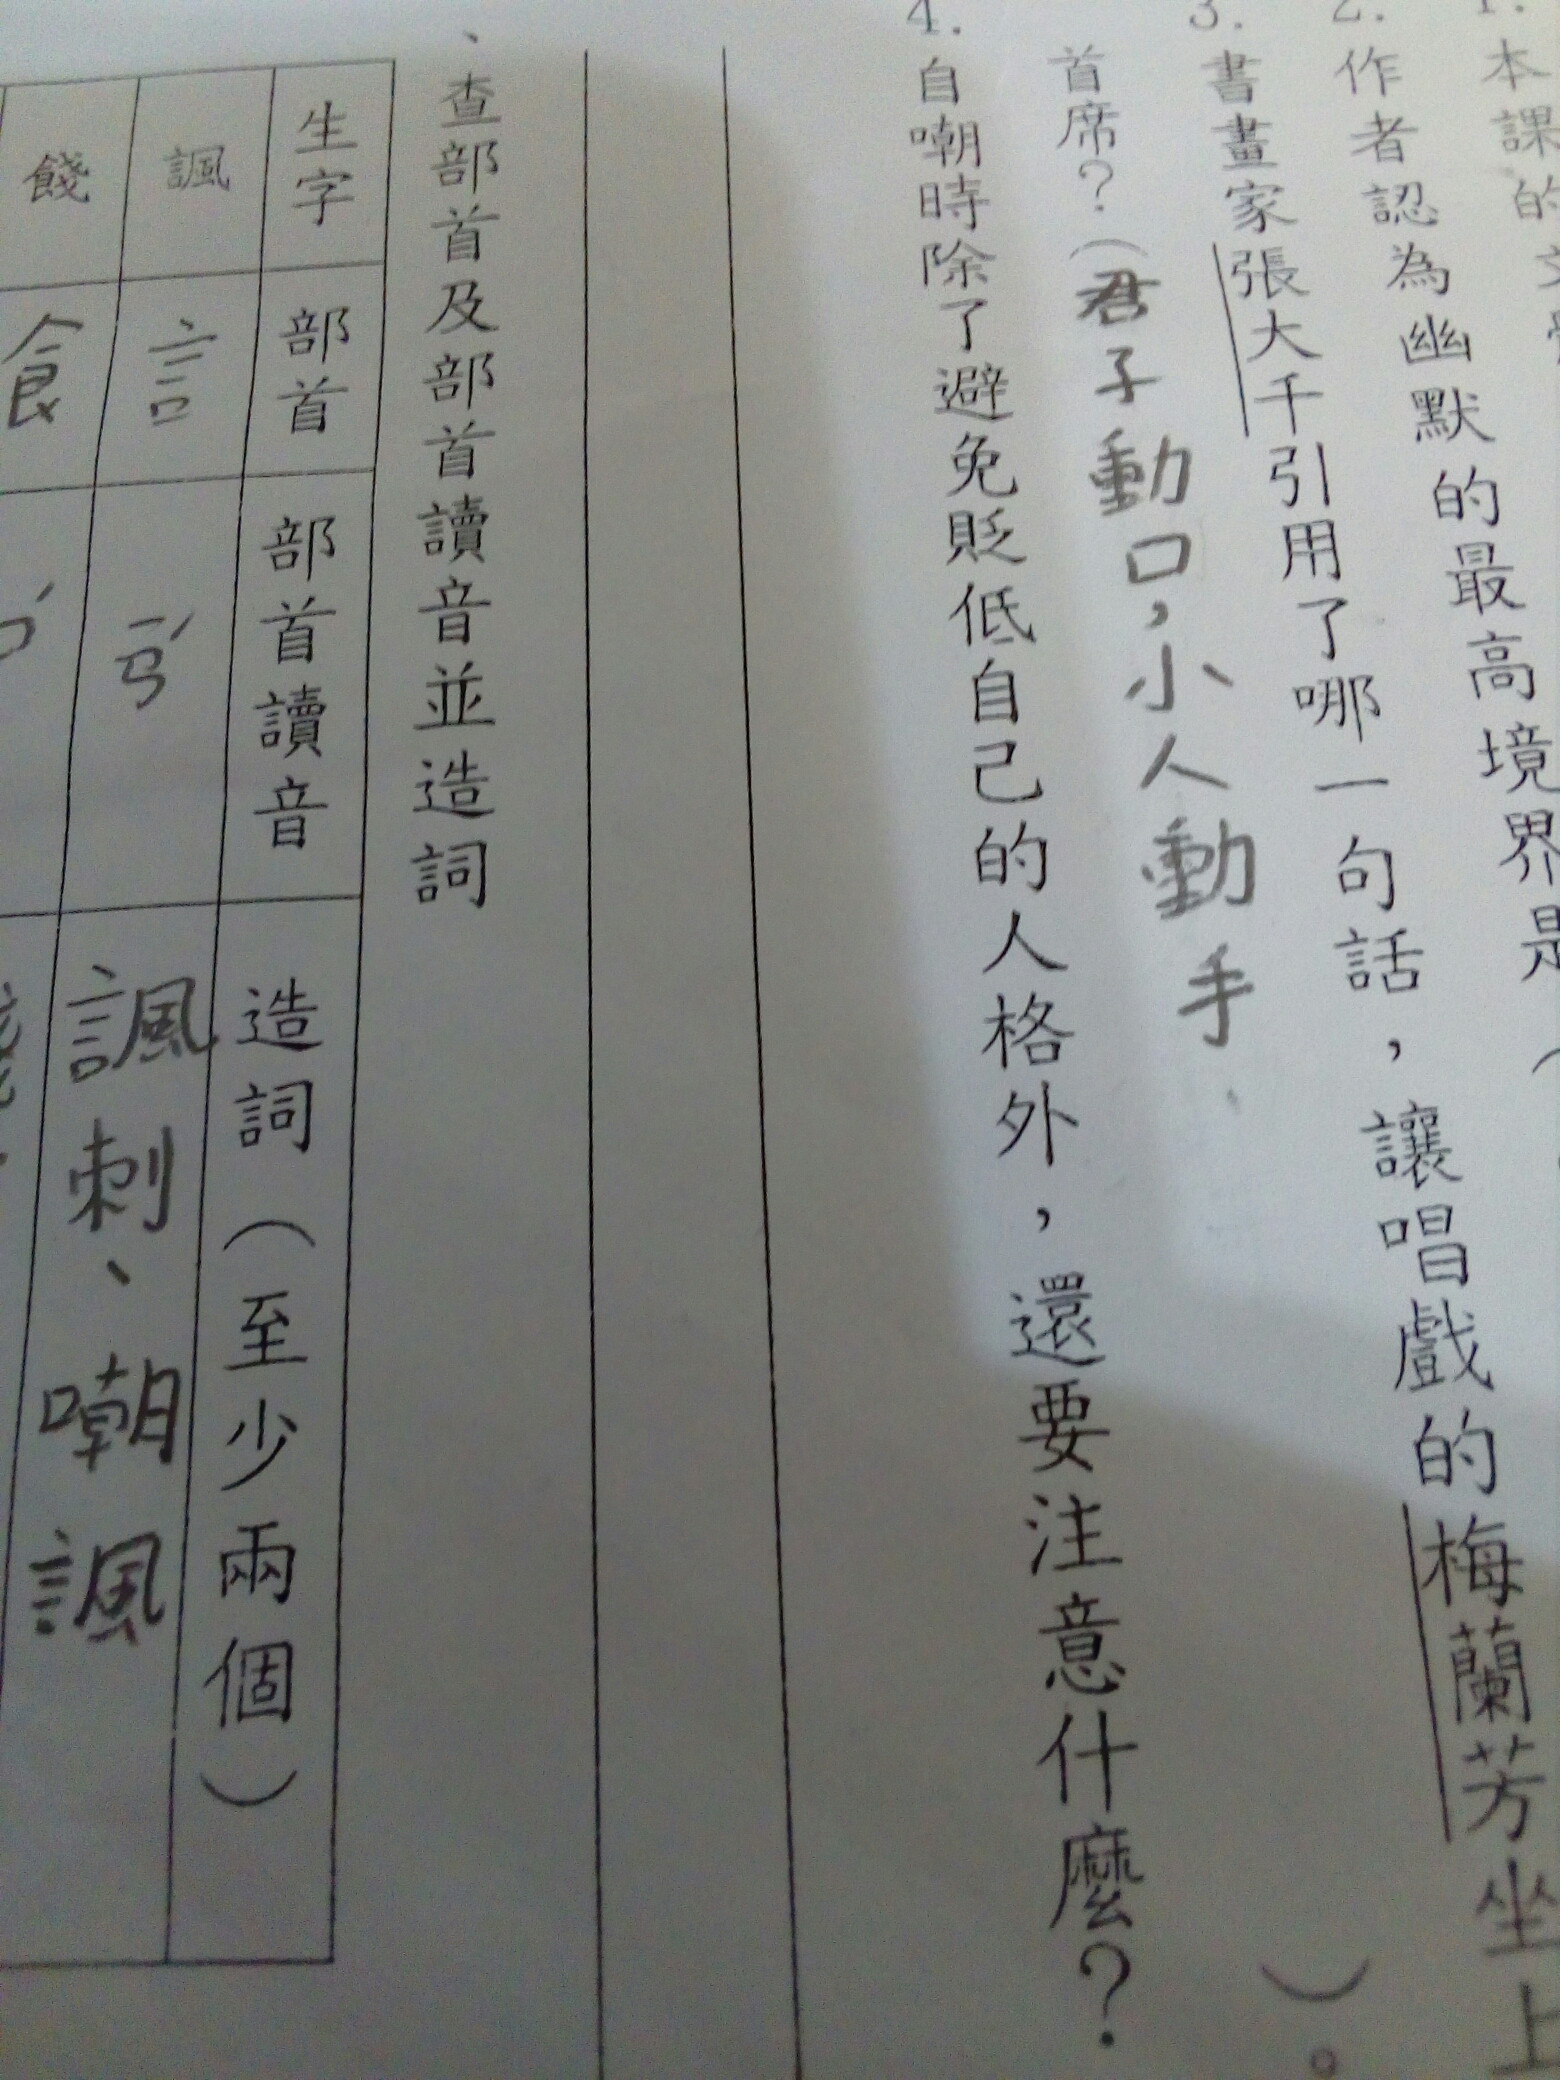 1.本課的文
2.作者認為幽默的最高境界是（
3.書畫家張大千引用了哪一句話，讓唱戲的梅蘭芳坐上
首席？（君子動口，小人動手）。
4.自嘲時除了避免貶低自己的人格外，還要注意什麼？
、查部首及部首讀音並造詞
生字 部首 部首讀音 造詞（至少兩個）
諷 言 ㄧㄢˊ 諷刺、嘲諷
餞 食